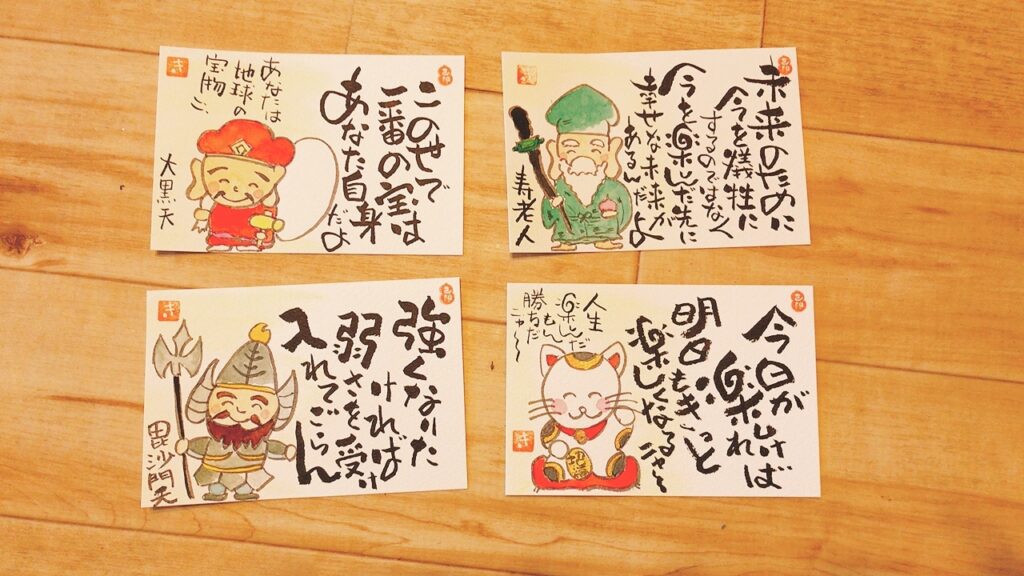 この世で
一番の宝は
あなた自身
だよ
あなたは
地球の
宝物
大黒天
未来のために
今を犠牲に
するのではなく
今を楽しんだ先に
幸せな未来が
あるんだよ
寿老人
強くなりた
ければ
弱さを受け
入れてごらん
毘沙門天
今日が
楽しければ
明日もきっと
楽しくなるさ〜
人生
楽しんだ
もん
勝ちだ